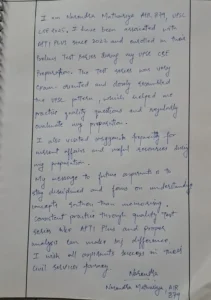 I am Narendra Mutharya AIR 879, UPSC
CSE 2025, I have been associated with
APTI PLUS since 2022 and enrolled in their
Prelims Test Series during my UPSC CSE
Preparation. The test series was very
exam oriented and closely resembled
the UPSC pattern, which helped me
practice quality questions and regularly
evaluate my preparation.
I also visited frequently for
current affairs and useful resources during
my preparation.
My message to future aspirants is to
stay disciplined and focus on understanding
concepts rather than memorising.
Consistent practice through quality Test
series like APTI Plus and proper
analysis can make big difference
I wish all aspirants success in their
Civil services journey
Narendra
Narendra Mutharya, AIR
879